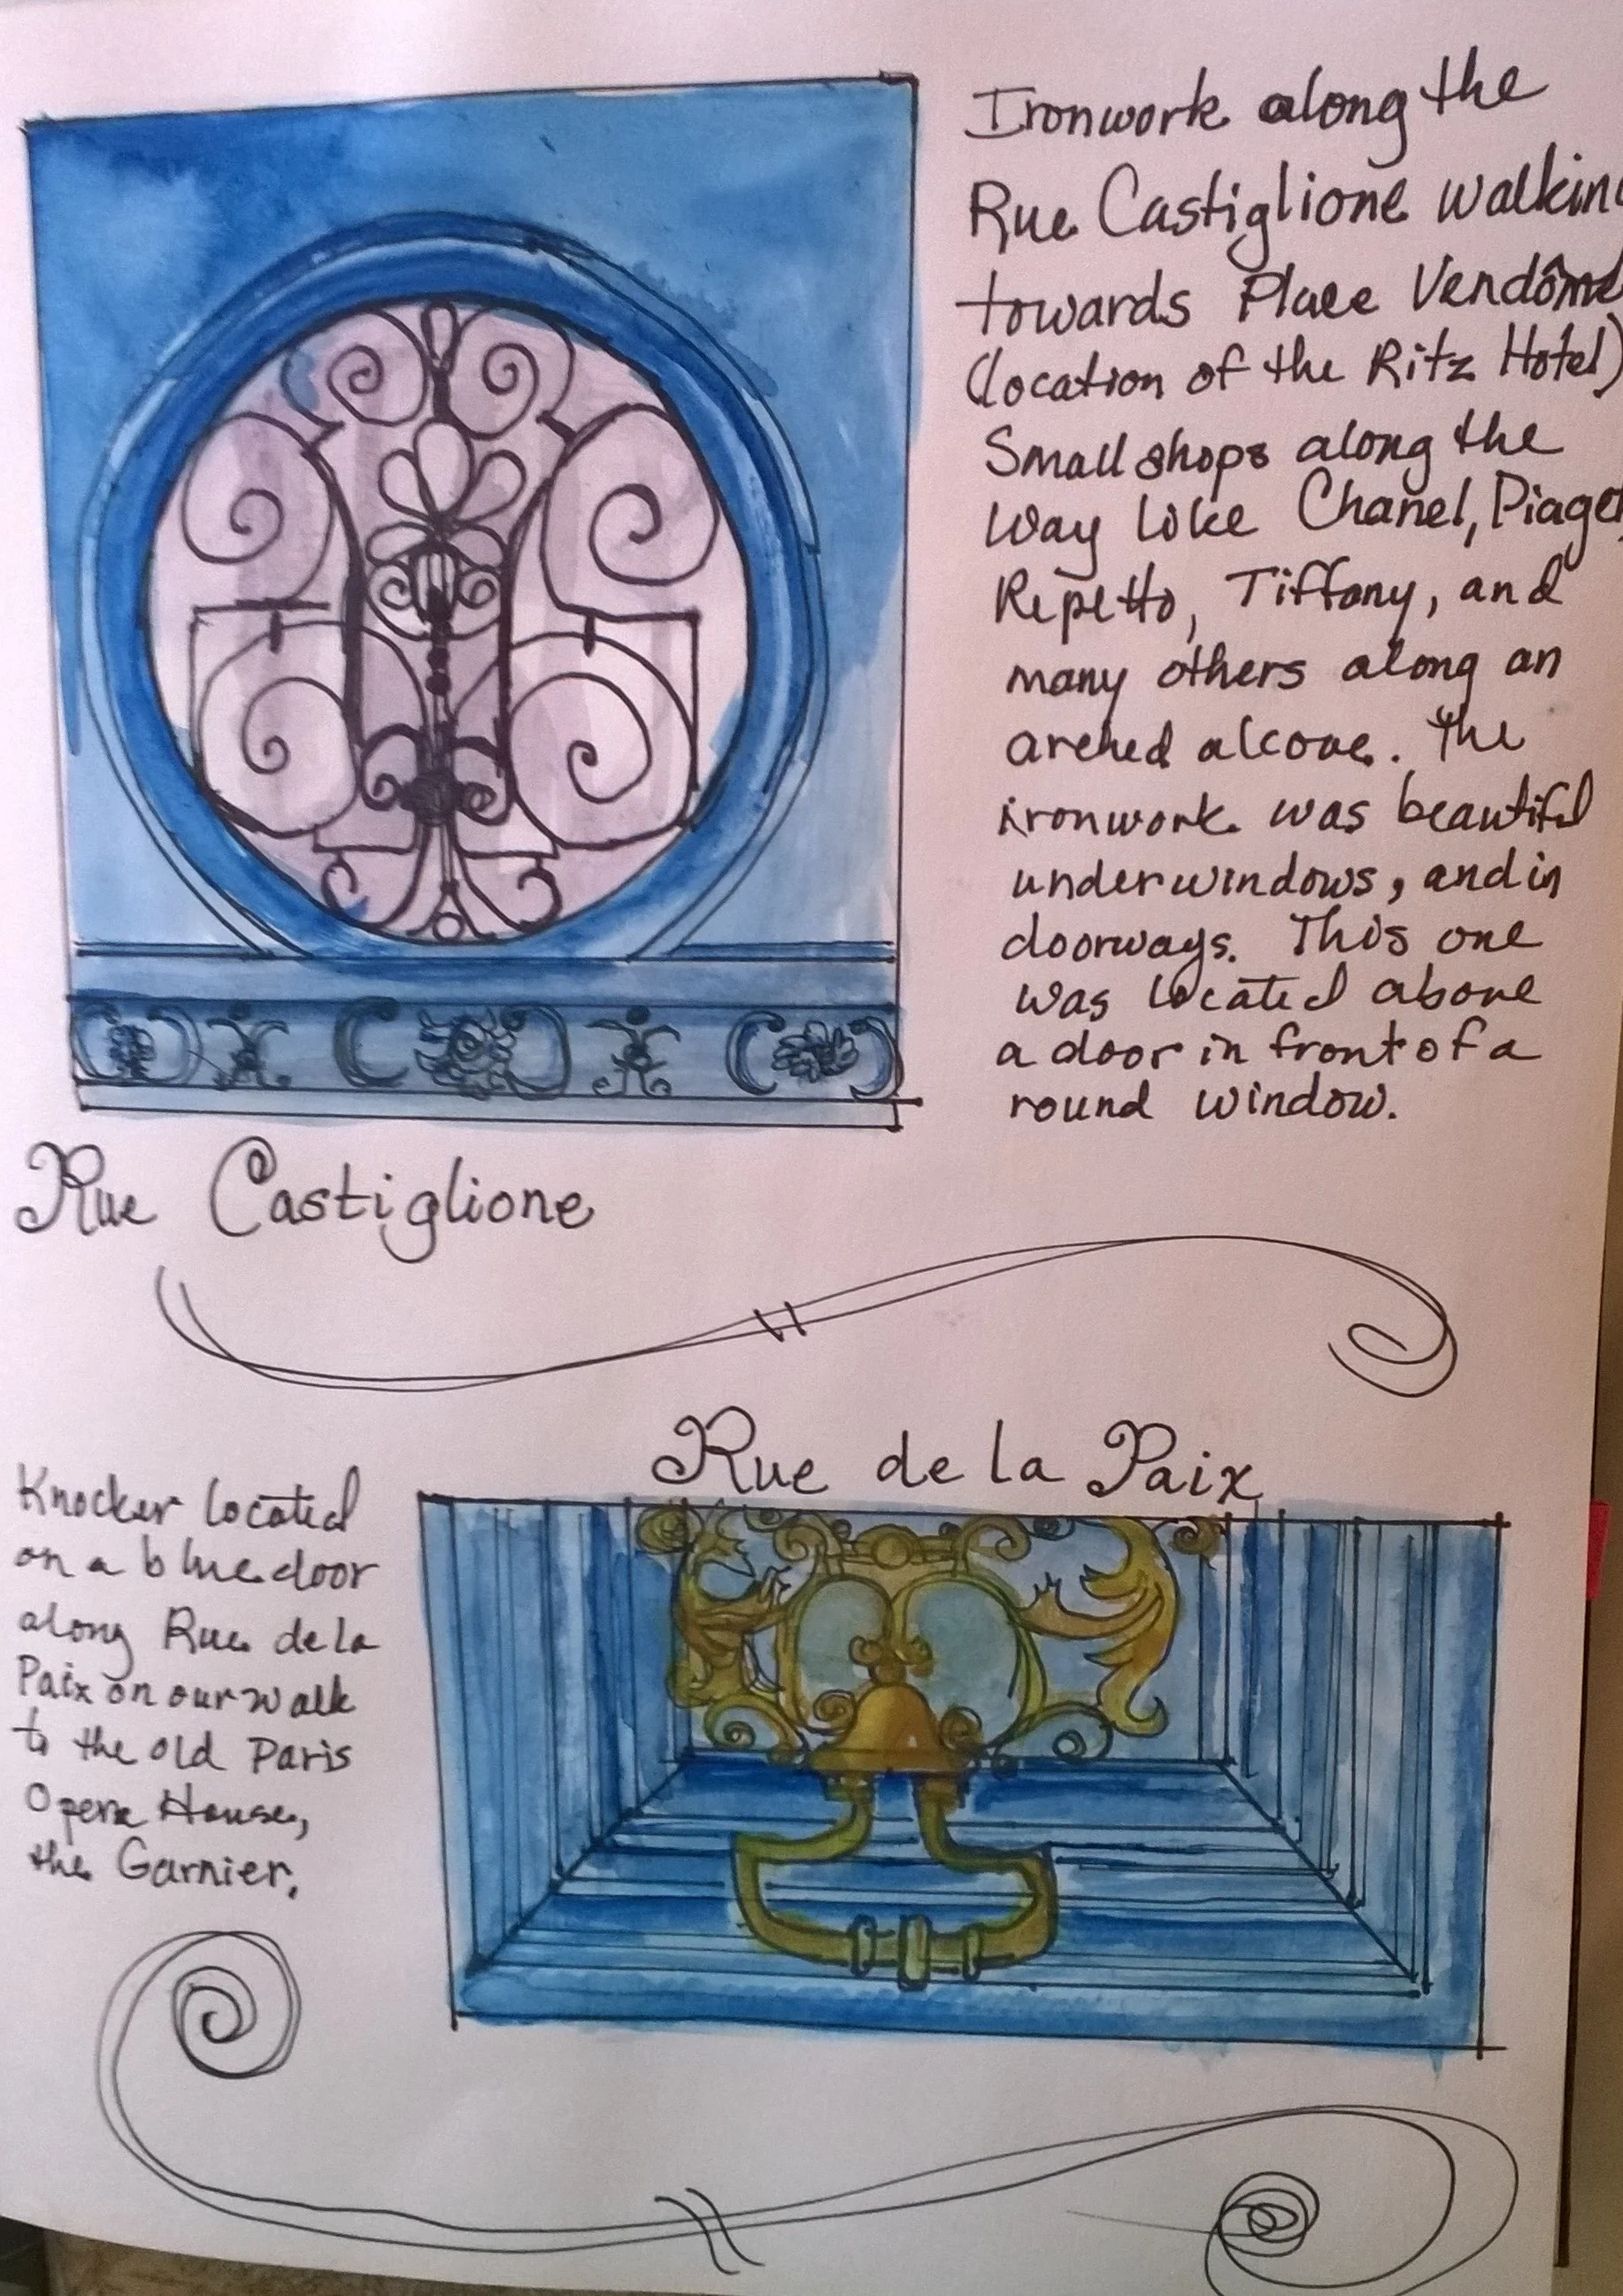 Ironwork along the
Rue Castiglione walking
towards Place Vendôme
(location of the Ritz Hotel)
Small shops along the
way like Chanel, Piaget,
Repetto, Tiffany, and
many others along an
arched alcove. The
ironwork was beautiful
under windows, and in
doorways. This one
was located above
a door in front of a
round window.
Rue Castiglione
Rue de la Paix
Knocker located
on a blue door
along Rue de la
Paix on our walk
to the old Paris
Opera House,
the Garnier.